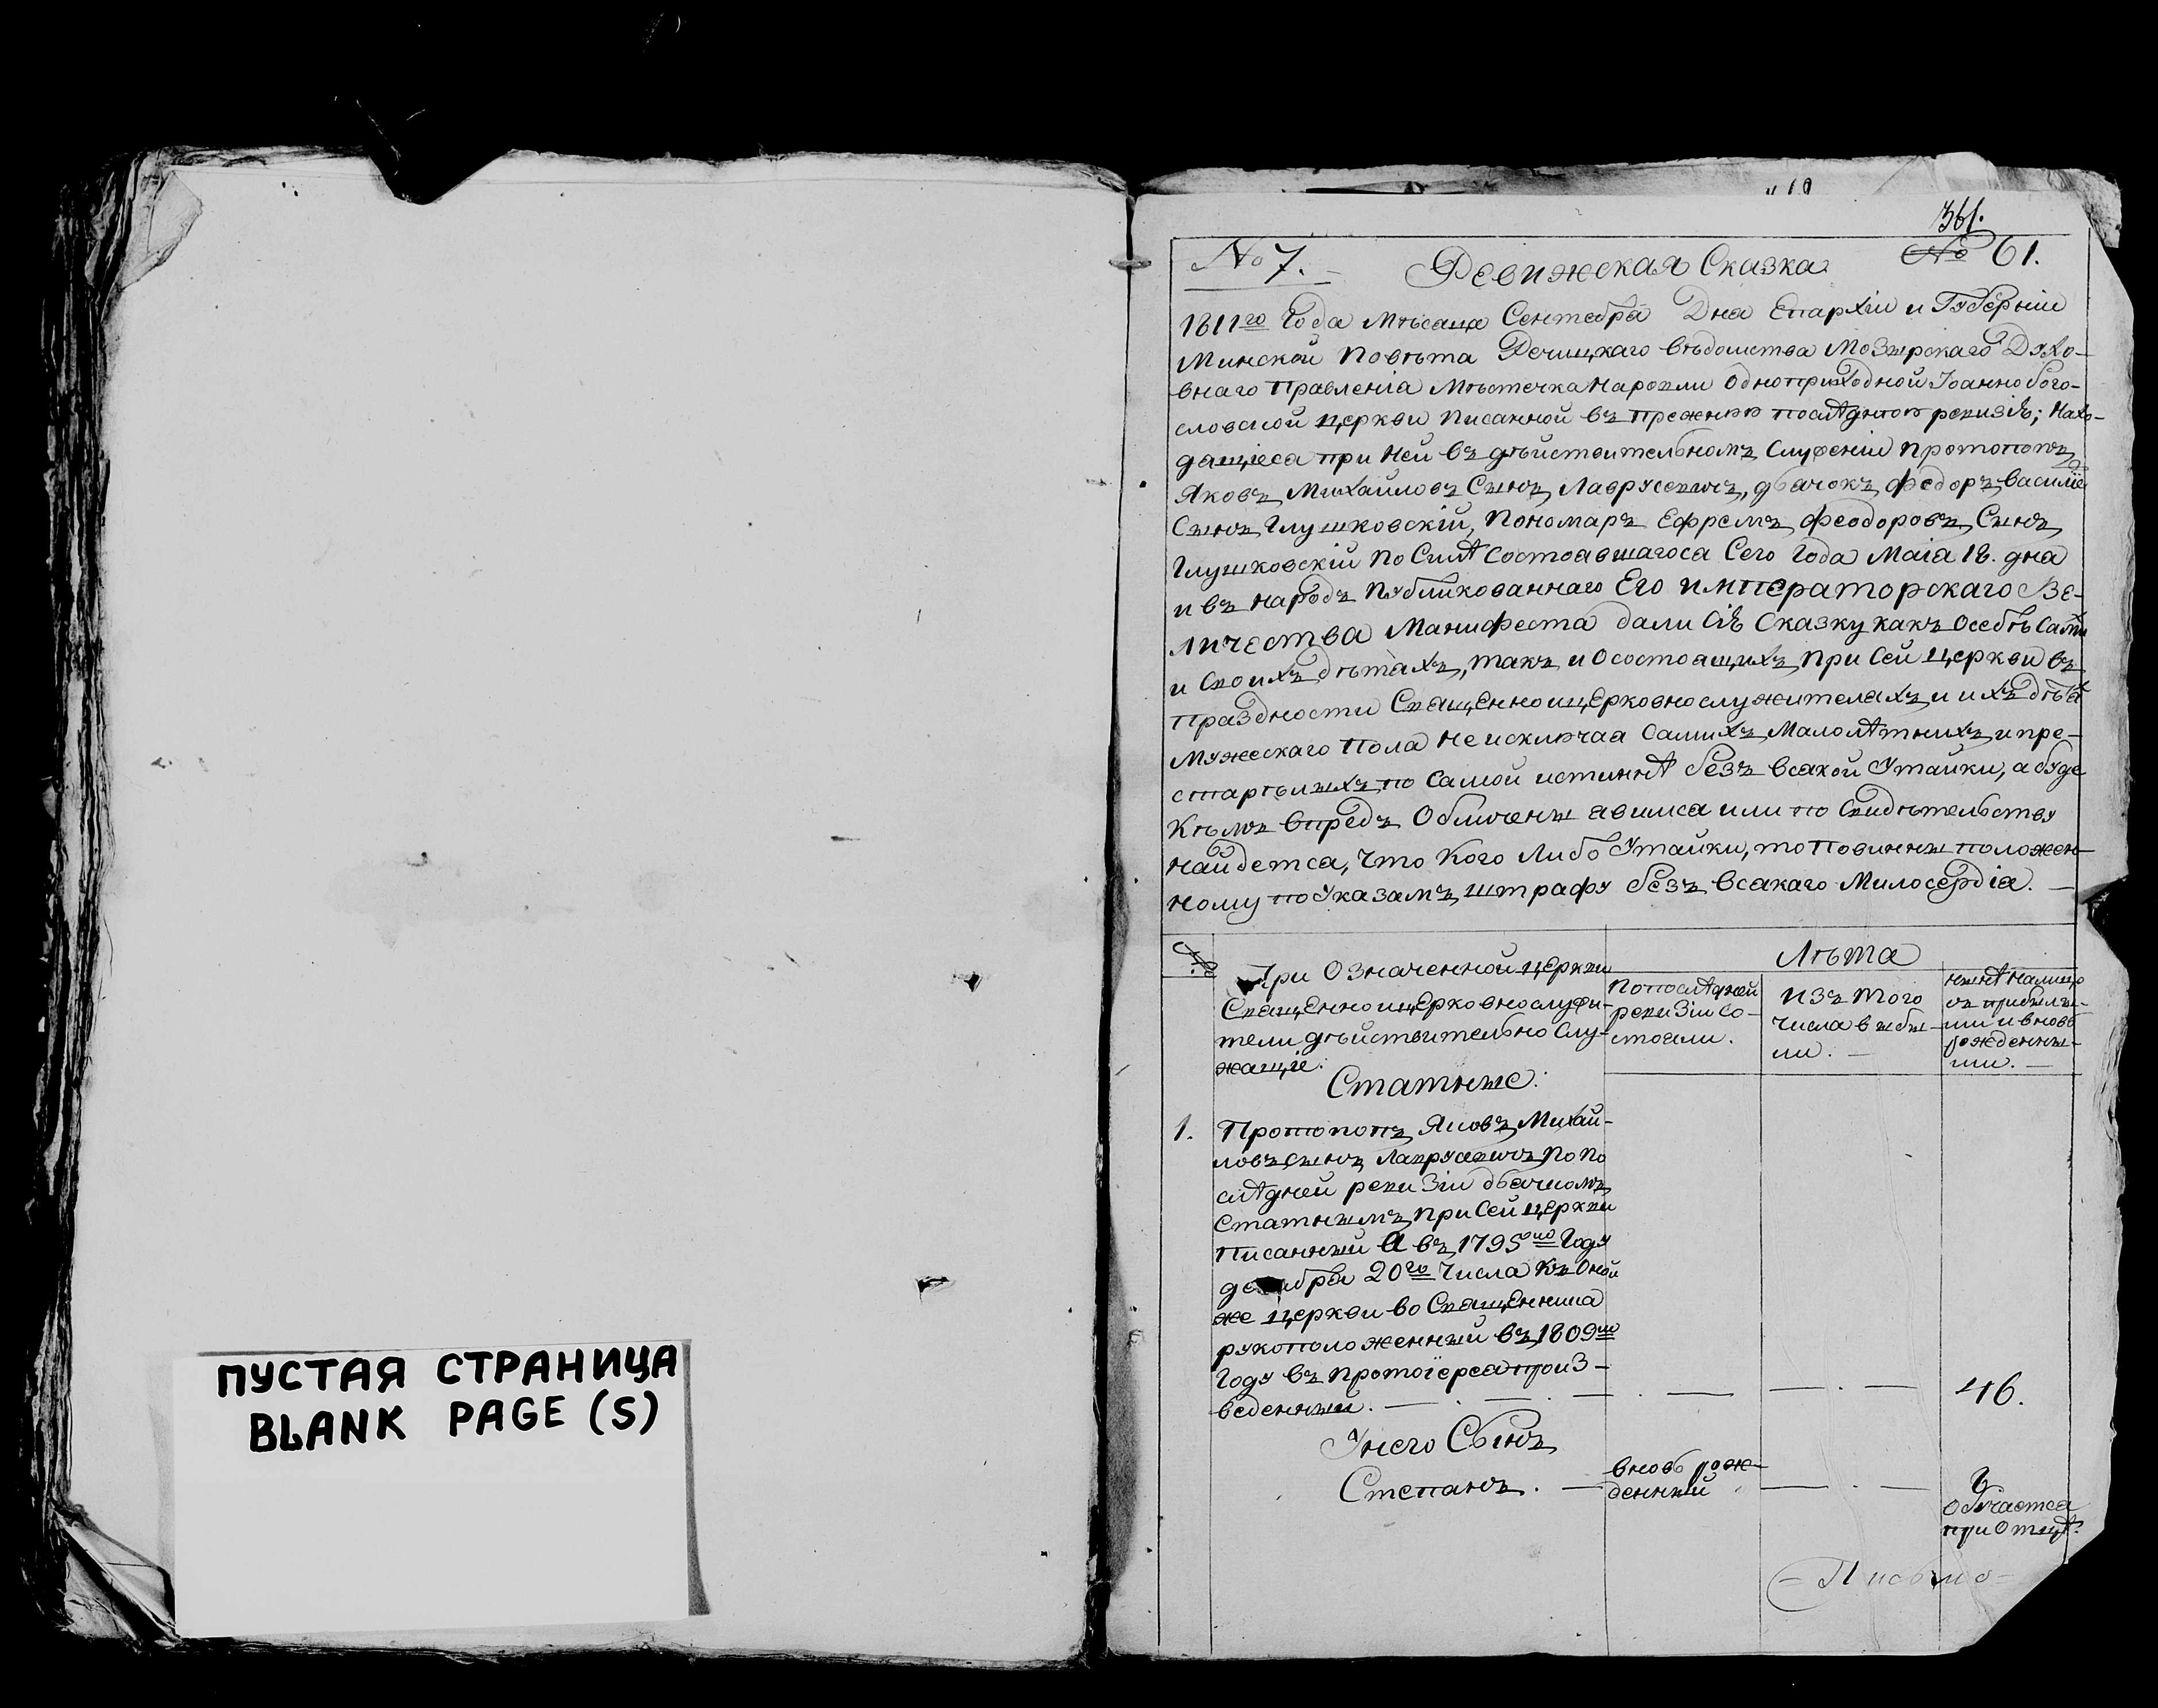 ПУСТАЯ СТРАНИЦА
BLANK PAGE (S)
361.
№ 7. Ревижская Сказка № 61.
1811го Года Мѣсаца Сентебра Дна Епархіи и Губерніи
Минской Повѣта Речицкаго вѣдомства Мозырскаго Духо-
внаго Правленіа Мѣстечка Наровли Одноприходной Іоанно бого-
словской церкви Писанной въ прежнюю послѣднюю ревизіѣ; Нахо-
дащіеса при ней въ дѣйствительномъ Служеніи Протопопъ
Яковъ Михайловъ Сынъ Лаврусевичъ, дьачокъ Федоръ Василіе
Сынъ Глушковскій, Пономаръ Ефремъ Феодоровъ Сынъ
Глушковскій По Силѣ Состоавшагоса Сего Года Маіа 18. дна
и въ народъ Публикованнаго Его императорскаго Ве-
личества Манифеста дали Сіѣ Сказку какъ Осебѣ Самы
и Своихъ дѣтахъ, такъ и Осостоащихъ при Сей церкви въ
праздности Сващенноицерковнослужителахъ и ихъ дѣтах
Мужескаго Пола неисключаа Самихъ Малолѣтнихъ и пре-
старѣлыхъ по Самой истиннѣ безъ Всакой Утайки, а буде
Кѣмъ впредъ Обличены авимса или по Свидѣтельству
найдетса, что Кого Либо Утайки, то Повинны положен-
ному по Указамъ штрафу безъ Всакаго Милосердіа.
№
При Означенной церкви
Сващенноицерковнослужи-
тели дѣйствительно Слу-
жащіе:
Лѣта
По послѣдней
ревизіи Со-
стоали.
изъ того
числа выбы-
ли.
нынѣ налицо
съ прибылы-
ми и вновь
рожденны-
ми.
Статные:
1. Протопопъ Яковъ Михай-
ловъ сынъ Лаврусевичъ По по
слѣдней ревизіи дьачкомъ
Статнымъ При Сей церкви
Писанный а въ 1795омъ Году
декабра 20го Числа Къ Оной
же церкви во Сващенника
рукоположенный въ 1809мъ
Году въ протоіереа произ-
веденный. 46.
Унего Сынъ
Степанъ. вновь рож-
денный
Обучаетса
при Отцѣ.
Письмо